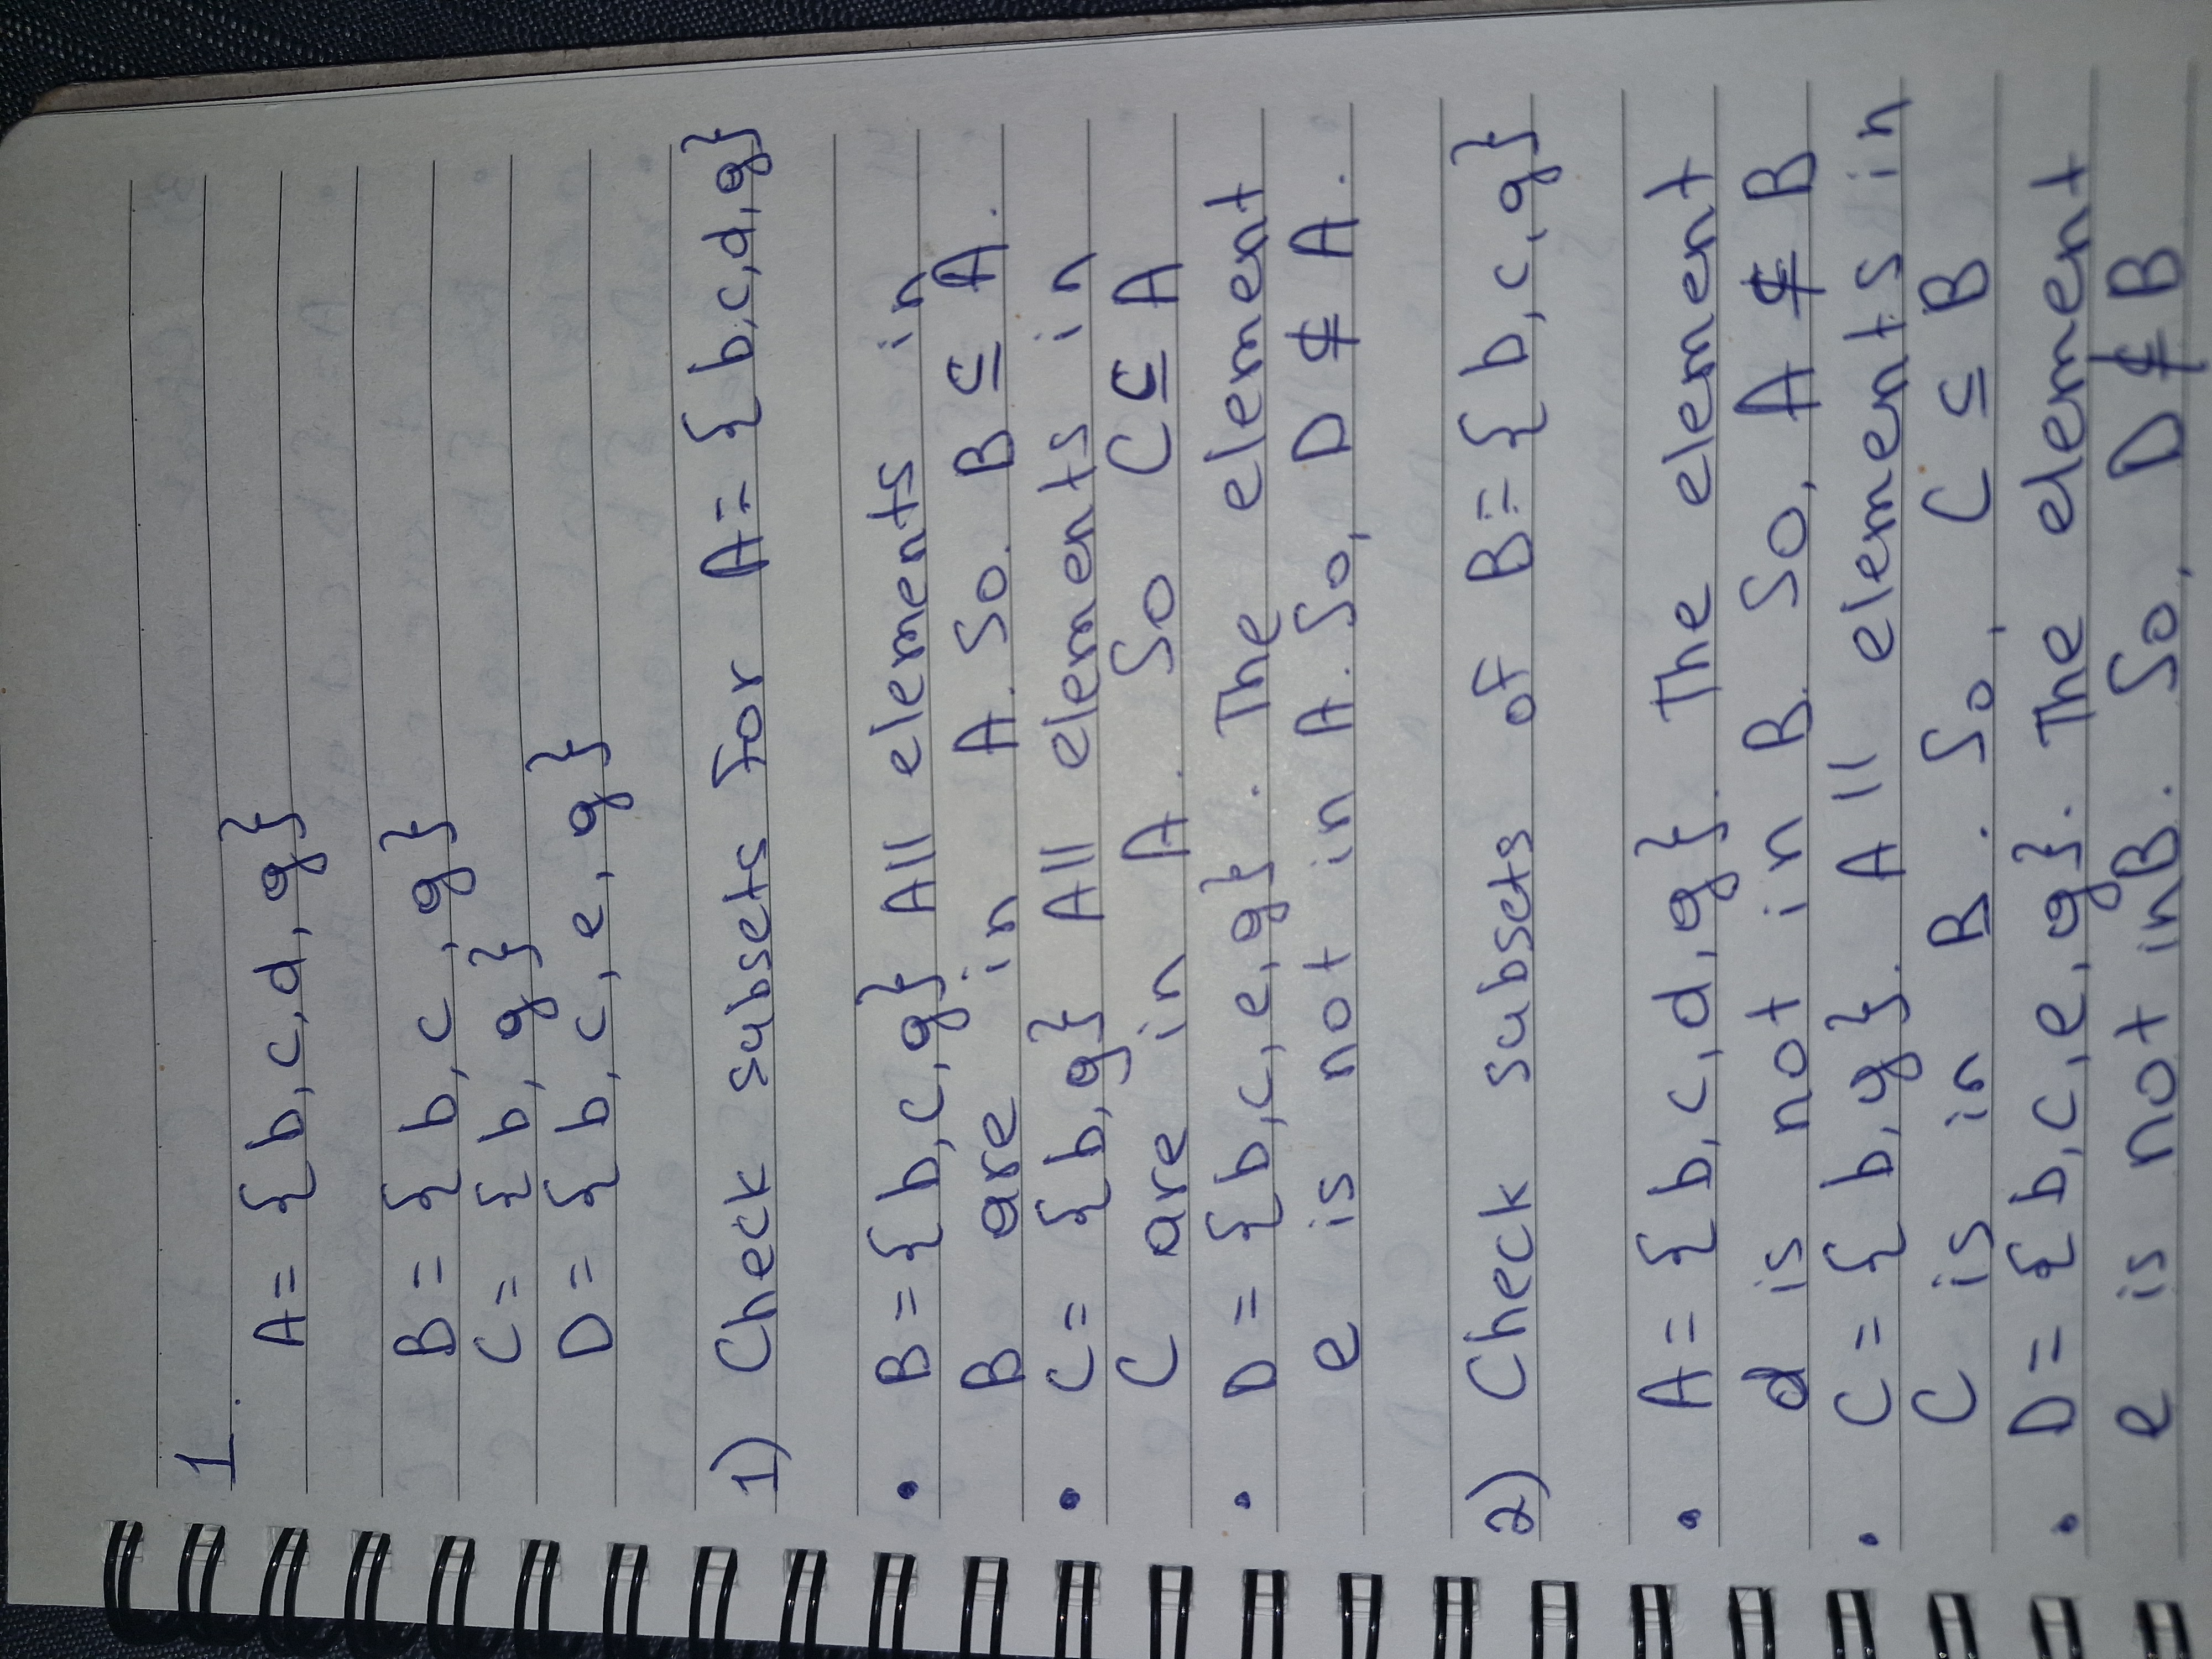 1.
A = { b, c, d, g}
B = { b, c, g}
C = { b, g }
D = { b, c, e, g}
1) Check subsets for A = { b, c, d, g}
• B = { b, c, g} All elements in
B are in A. So. B ⊆ A.
• C = {b, g} All elements in
C are in A. So C ⊆ A
• D = {b, c, e, g}. The element
e is not in A. So, D ⊈ A.
2) Check subsets of B = { b, c, g}
• A = { b, c, d, g}. The element
d is not in B. So, A ⊈ B
• C = { b, g}. All elements in
C is in B. So, C ⊆ B
• D = { b, c, e, g}. The element
e is not in B. So, D ⊈ B